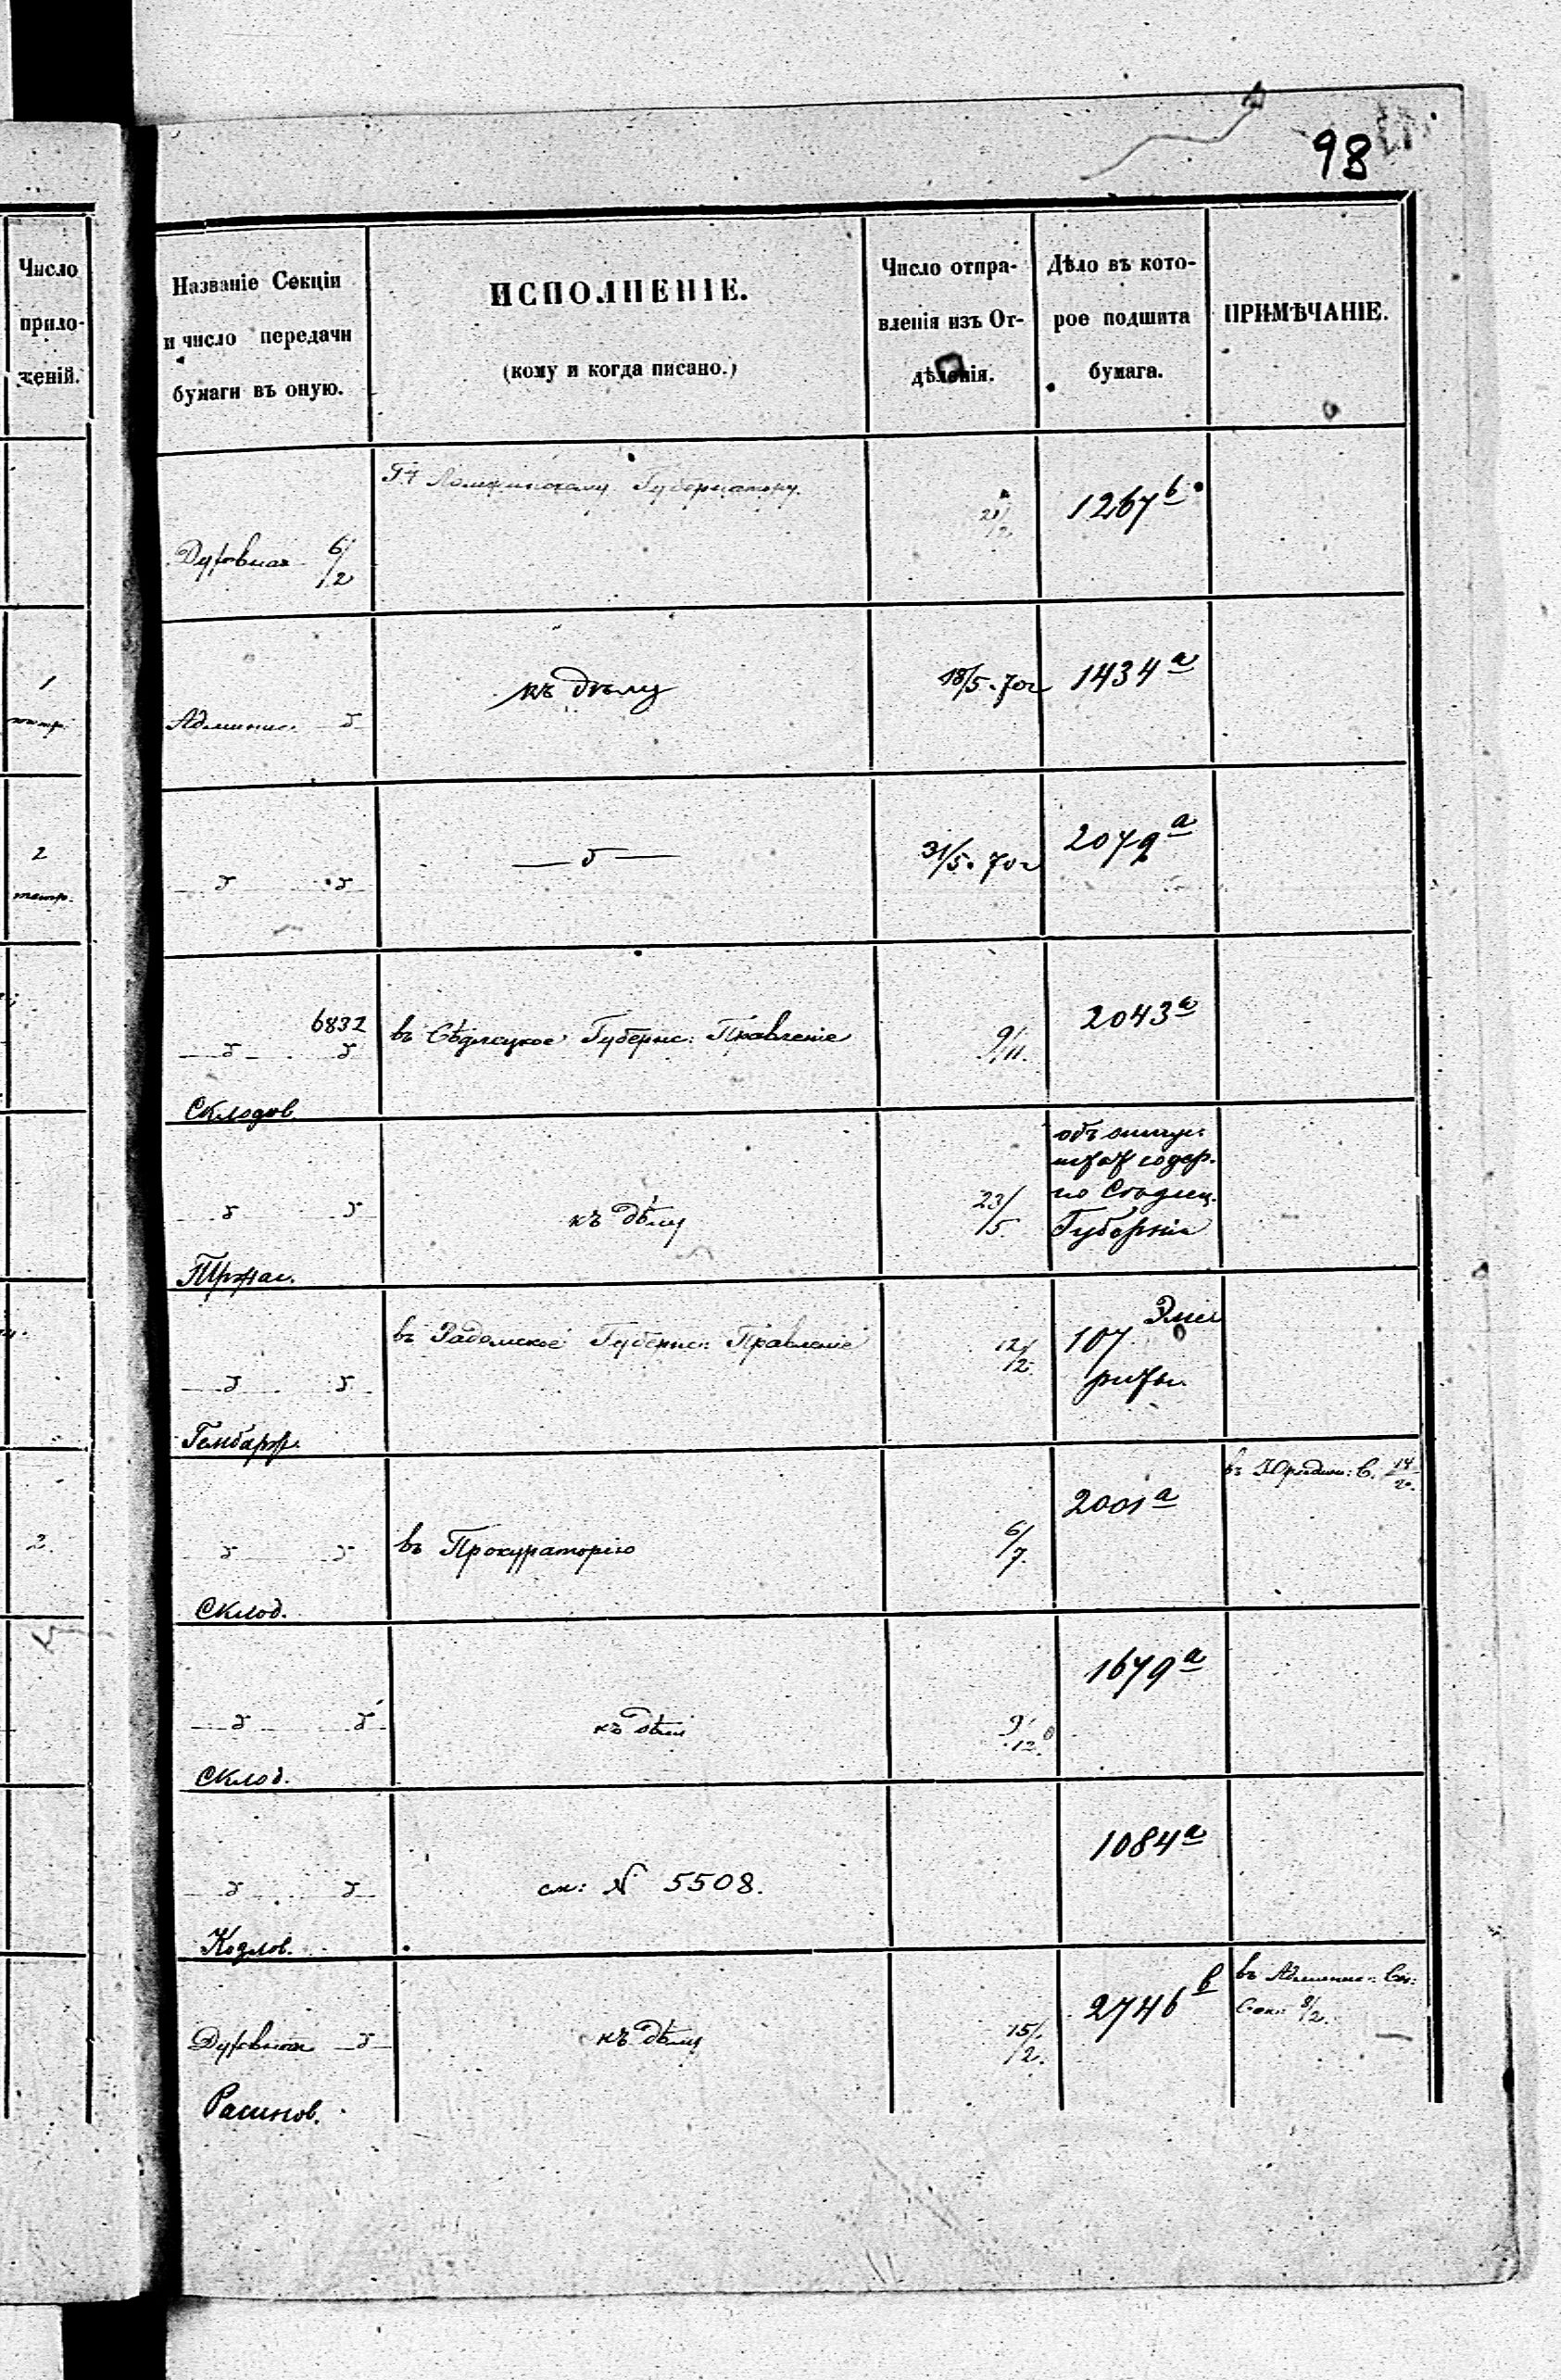 98
Число
прило-
жений.
Названіе Секціи
и число передачи
бумаги въ оную.
ИСПОЛНЕНІЕ.
(кому и когда писано.)
Число отпра-
вленія изъ От-
дѣленія.
Дѣло въ кото-
рое подшита
бумага.
ПРИМѢЧАНІЕ.
Ломжинскому Губернатору.
Духовная 6/2
21/2
1267 b
1
Админис.
къ дѣлу
18/5. 70 г
1434 a
2
31/5. 70 г
2079 a
6832
Склодов
въ Сѣдлецкое Губернс: Правленіе
9/11.
2043 a
къ дѣлу
23/5.
содер.
Губерніи
въ Радомское Губернс: Правленіе
12/2.
107
Гембарж.
2.
Склод.
въ Прокураторію
6/7.
2001 a
въ Юридич: С. 14/2.
Склод.
къ дѣлу
9/12.
1679 a
Козлов.
см: № 5508.
1084 a
Духовная
къ дѣлу
15/2.
2746 b
въ Админис:
8/2.